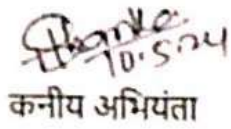 10.5.24
कनीय अभियंता